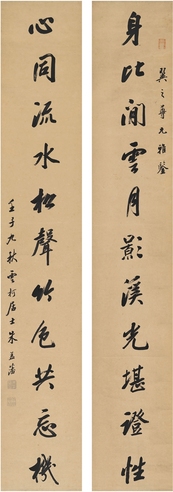 翼之尊兄雅鉴
身比闲云月影溪光堪證性
心同流水松聲竹色共忘機
壬子九秋雲柯居士朱益藩